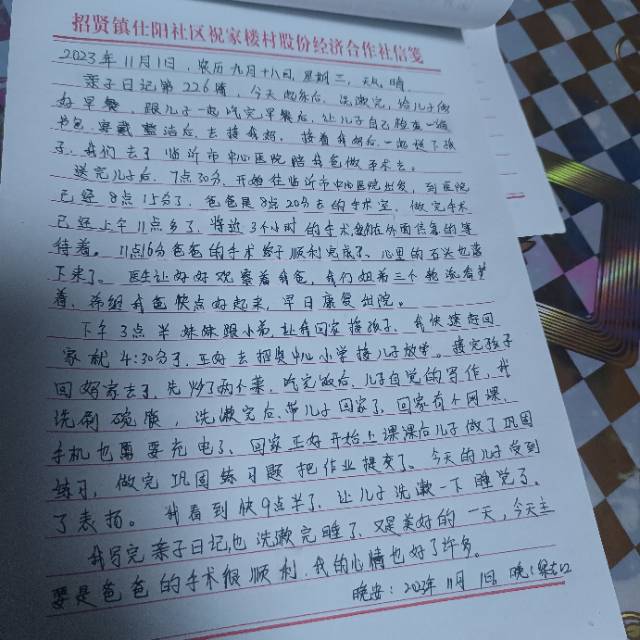 招贤镇仕阳社区祝家楼村股份经济合作社信笺
2023年11月1日，农历九月十八日，星期三，天气晴。
亲子日记第226篇，今天起床后，洗漱完，给儿子做
好早餐，跟儿子一起吃完早餐后，让儿子自己检查一遍
书包，穿戴整洁后，去接我妈，接着我妈后一起送下孩
子，我们去了临沂市中心医院陪我爸做手术去。
送完儿子后，7点30分，开始往临沂市中心医院出发，到医院
已经8点15分了，爸爸是8点20分去的手术室，做完手术
已经上午11点多了，将近3个小时的手术，在外面焦急的等
待着。11点16分爸爸的手术终于顺利完成了，心里的石头也落
下来了。医生让好好观察着我爸，我们姐弟三个轮流看护
着，希望我爸快点好起来，早日康复出院。
下午3点半妹妹跟小弟，让我回家接孩子，我快速赶回
家就4:30分了，正好去招贤中心小学接儿子放学。接完孩子
回妈家去了，先炒了两个菜，吃完饭后，儿子自觉的写作，我
洗刷碗筷，洗漱完后带儿子回家了，回家有个网课，
手机也需要充电了，回家正好开始上课课后儿子做了巩固
练习，做完巩固练习题把作业提交了。今天的儿子受到
了表扬。我看到快9点半了，让儿子洗漱一下睡觉了。
我写完亲子日记也洗漱完睡了，又是美好的一天，今天主
要是爸爸的手术很顺利，我的心情也好了许多。
晚安：2023年11月1日，晚